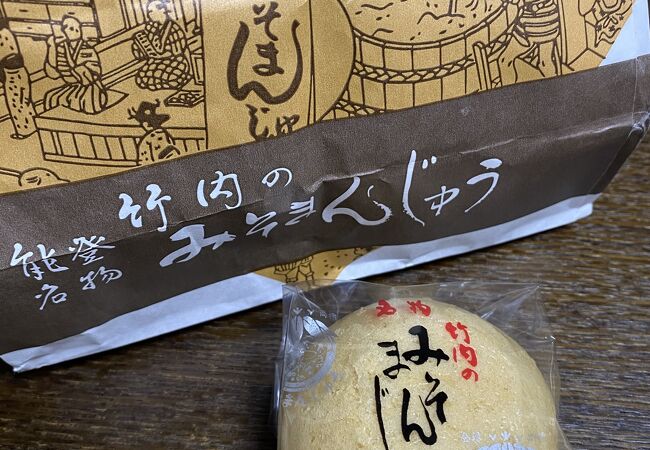 そまんじゅ
竹内の
みそまんじゅう
能登
名物
名物
竹内の
みそ
まんじ